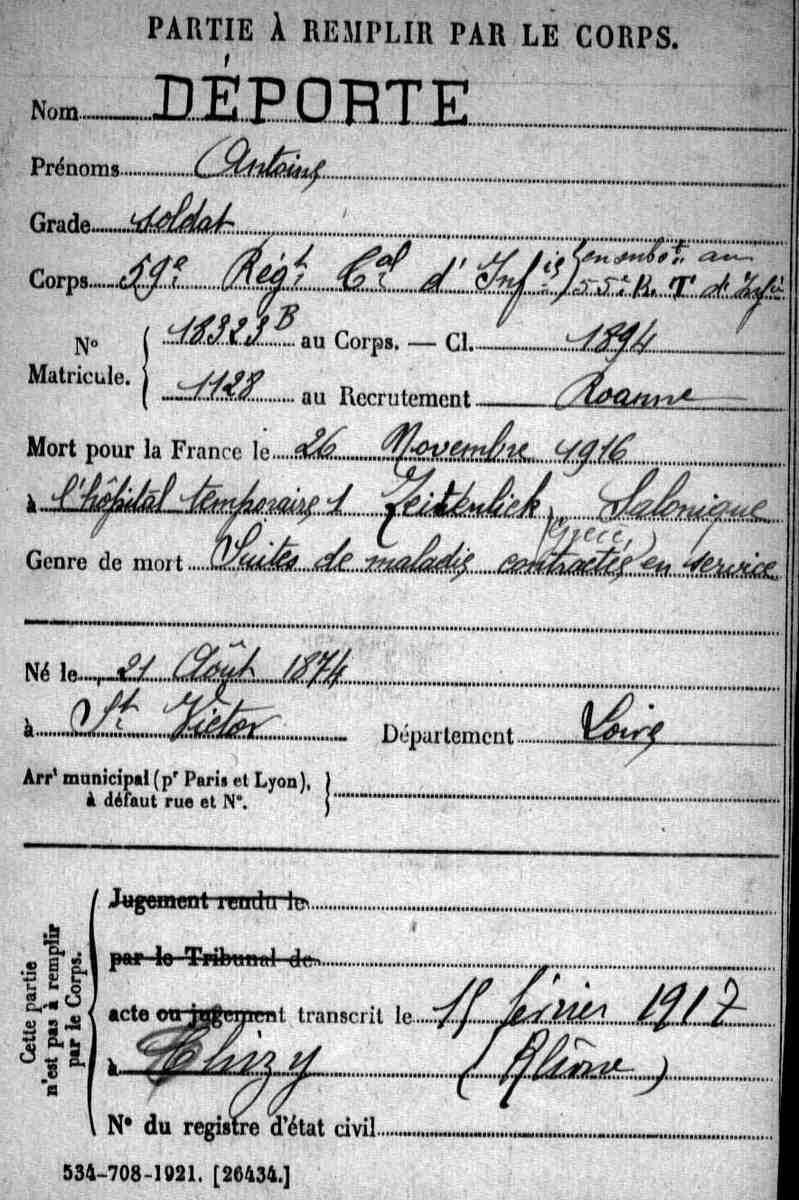 PARTIE À REMPLIR PAR LE CORPS.
Nom DÉPORTE
Prénoms Antoine
Grade soldat
Corps 59e Régt Cal d'Infie en subce au 55e R. T d'Infie
N° Matricule. 18323 B au Corps. — Cl. 1894
1128 au Recrutement Roanne
Mort pour la France le 26 Novembre 1916
à l'hôpital temporaire 1 Zeitenlick Salonique
(Grèce)
Genre de mort Suites de maladie contractée en service
Né le 21 Août 1874
à St Victor Département Loire
Arrt municipal (pr Paris et Lyon),
à défaut rue et N°.
Cette partie n'est pas à remplir par le Corps.
Jugement rendu le
par le Tribunal de
acte ou jugement transcrit le 15 février 1917
à Thizy (Rhône)
N° du registre d'état civil
534-708-1921. [26434.]